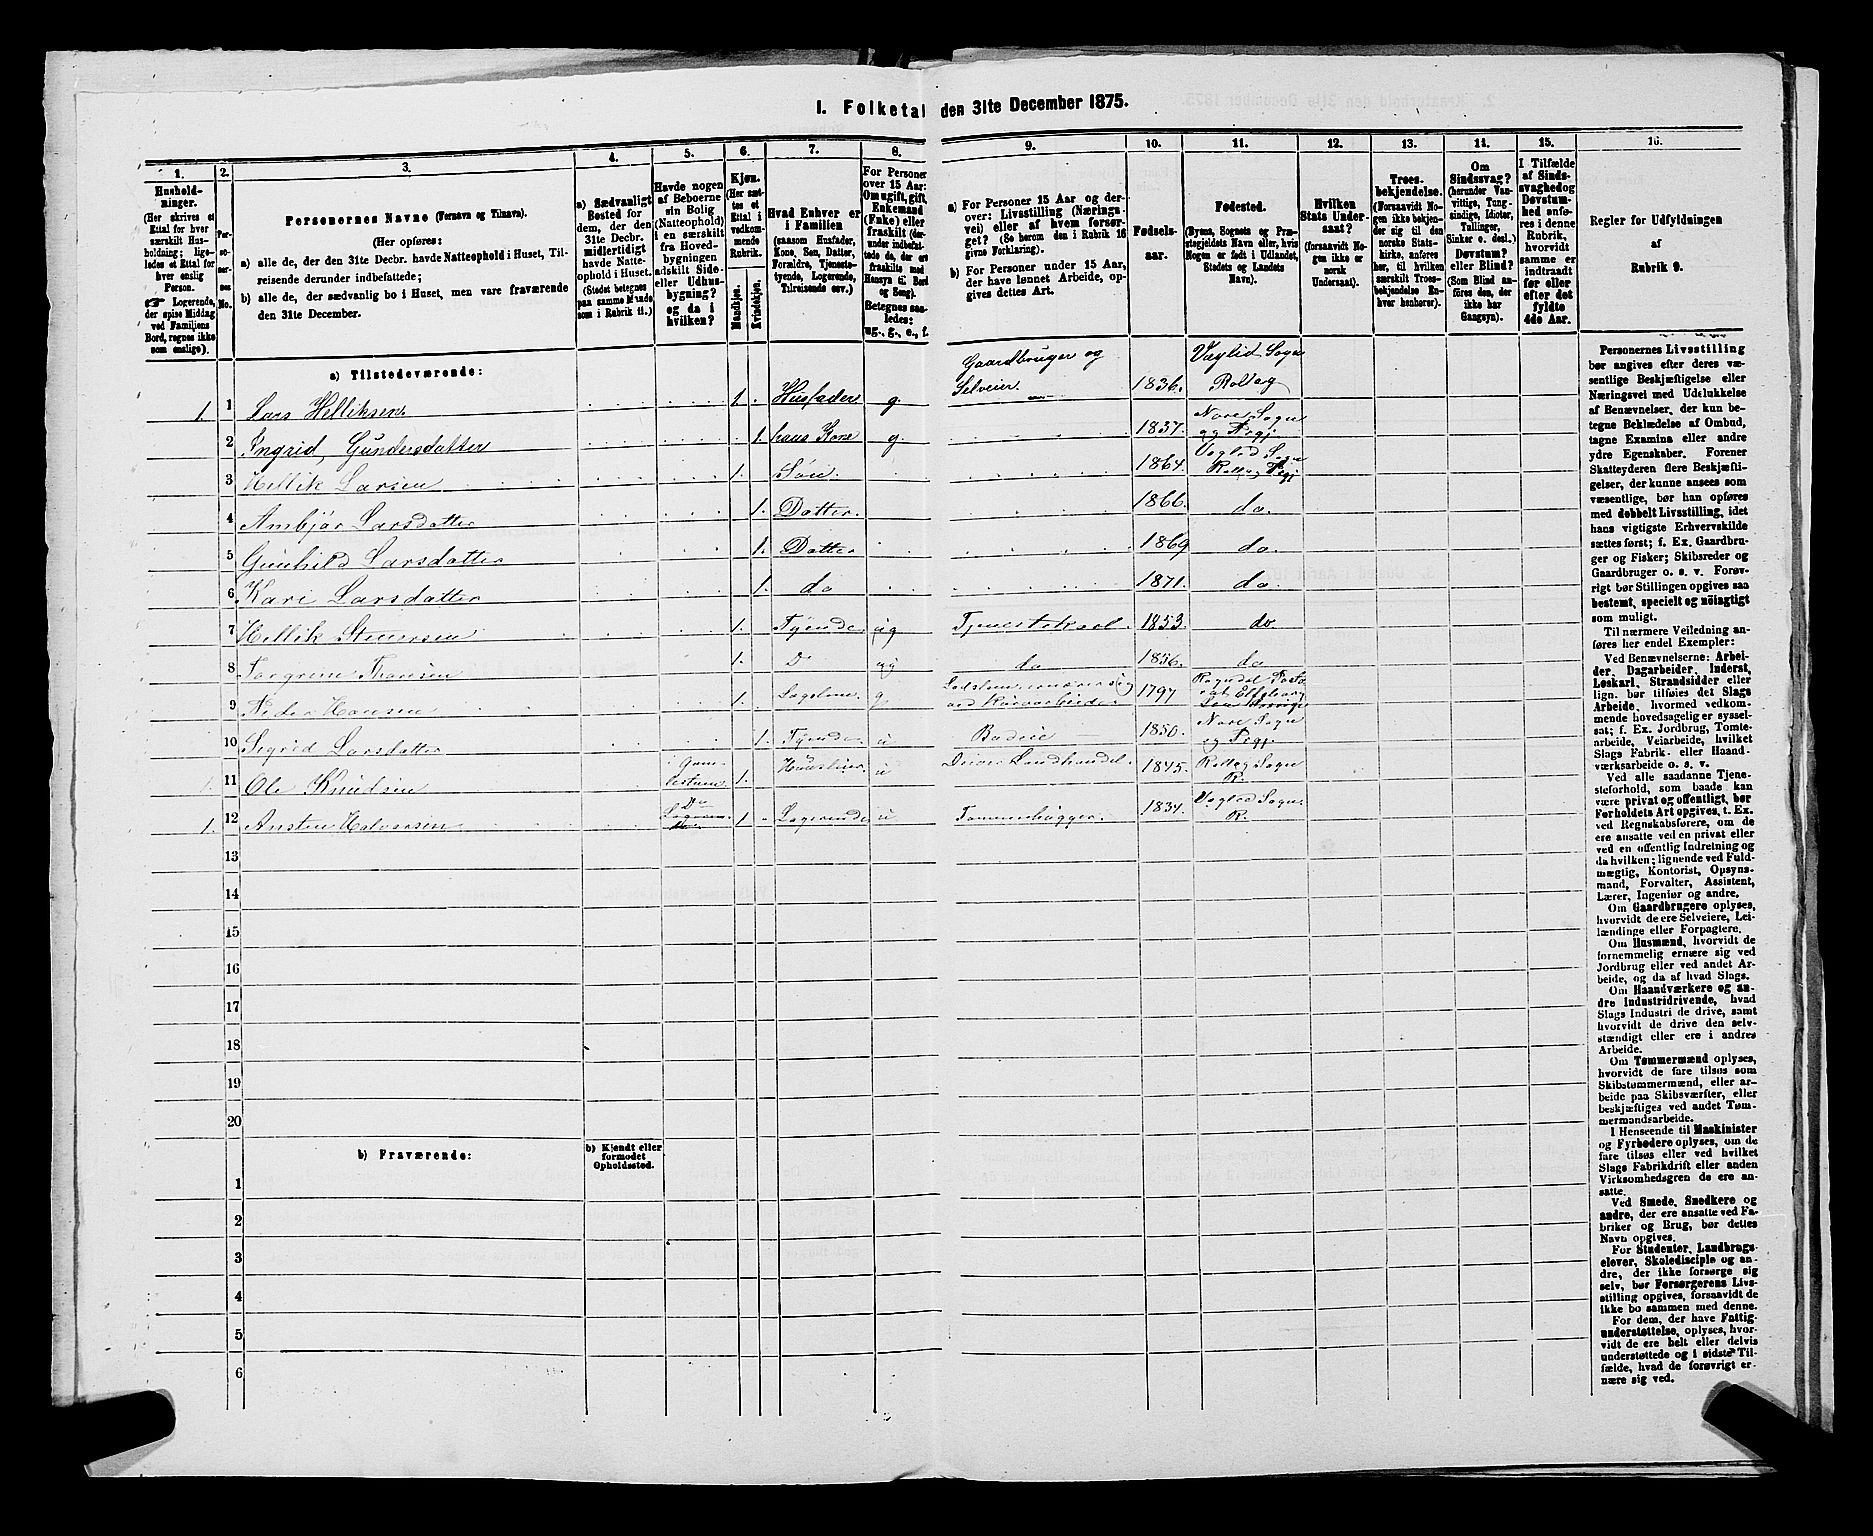 1. Folketal den 31te December 1875.
1.
Hushold-
ninger.
(Her skrives et
Ettal for hver
særskilt Hus-
holdning; lige-
ledes et Ettal for
hver enslig
Person.
☞ Logerende,
der spise Middag
ved Familiens
Bord, regnes ikke
som enslige).
2.
Per-
so-
ner-
nes
No.
3.
Personernes Navne (Fornavn og Tilnavn).
(Her opføres:
a) alle de, der den 31te Decbr. havde Natteophold i Huset, Til-
reisende derunder indbefattede;
b) alle de, der sædvanlig bo i Huset, men vare fraværende
den 31te December.
4.
a) Sædvanligt
Bosted for
dem, der den
31te Decbr.
midlertidigt
havde Natte-
ophold i Huset.
(Stedet betegnes
paa samme Maade
som i Rubrik 11.)
5.
Havde nogen
af Beboerne
sin Bolig
(Natteophold)
i en særskilt
fra Hoved-
bygningen
adskilt Side-
eller Udhus-
bygning?
og da i
hvilken?
6.
Kjøn.
(Her sæt-
tes et
Ettal i
vedkom-
mende
Rubrik.
Mandkjøn.
Kvindekjøn.
7.
Hvad Enhver er
i Familien
(saasom Husfader,
Kone, Søn, Datter,
Forældre, Tjeneste-
tyende, Logerende,
Tilreisende osv.)
8.
For Personer
over 15 Aar:
Om ugift, gift,
Enkemand
(Enke) eller
fraskilt (der-
under indbefat-
tede de, der ere
fraskilte med
Hensyn til Bord
og Seng).
Betegnes saa-
ledes:
ug., g., e., f.
9.
a) For Personer 15 Aar og der-
over: Livsstilling (Nærings-
vei) eller af hvem forsør-
get? (Se herom den i Rubrik 16
givne Forklaring).
b) For Personer under 15 Aar,
der have lønnet Arbeide, op-
gives dettes Art.
10.
Fødsels-
aar.
11.
Fødested.
(Byens, Sognets og Præ-
stegjeldets Navn eller, hvis
Nogen er født i Udlandet,
Stedets og Landets
Navn).
12.
Hvilken
Stats Under-
saat?
(forsaavidt No-
gen ikke er
norsk
Undersaat).
13.
Troes-
bekjendelse.
(Forsaavidt No-
gen ikke bekjen-
der sig til den
norske Stats-
kirke, anføres
her, til hvilken
særskilt Troes-
bekjendelse En-
hver henhører).
14.
Om
Sindssvag?
(herunder Van-
vittige, Tung-
sindige, Idioter,
Tullinger,
Sinker o. desl.)
Døvstum?
eller Blind?
(Som Blind an-
føres den, der
ikke har
Gangsyn).
15.
I Tilfælde
af Sinds-
svaghed og
Døvstum-
hed anfø-
res i denne
Rubrik,
hvorvidt
samme er
indtraadt
før eller
efter det
fyldte
4de Aar.
16.
Regler for Udfyldningen
af
Rubrik 9.
a) Tilstedeværende:
1. 1 Lars Helliksen 1. Husfader g. Gaardbruger og Selveier 1836. Væglid Sogn Rollag
2 Ingrid Gundersdatter 1. hans Kone g. 1837. Nore Sogn og Pregj
3 Hellik Larsen 1. Søn 1864. Veglid Sogn Rollag Pregj
4 Ambjør Larsdatter 1. Datter. 1866. do.
5 Gunhild Larsdatter 1. Datter 1869 do.
6 Kari Larsdatter 1. do 1871. do
7 Hellik Steensen 1. Tyende ug Tjenestekarl. 1853. do
8 Torgrim Thoresen 1. D ug do 1856. do
9 Peder Hansen 1. g 1797
10 Sigrid Larsdatter 1. Tyende u Budeie 1850. Nore Sogn og Pregj.
1. 11 Ole Knudsen 1. u Driver Landhandel. 1845. Rollag Sogn R.
1. 12 Ansten Halvorsen Do 1 Logerende u Tømmerhugger. 1834. Veglid Sogn R.
13
14
15
16
17
18
19
20
b) Fraværende:
b) Kjendt eller
formodet
Opholdssted.
1
2
3
4
5
6
Personernes Livsstilling
bør angives efter deres væ-
sentlige Beskjæftigelse eller
Næringsvei med Udelukkelse
af Benævnelser, der kun be-
tegne Beklædelse af Ombud,
tagne Examina eller andre
ydre Egenskaber. Forener
Skatteyderen flere Beskjæfti-
gelser, der kunne ansees som
væsentlige, bør han opføres
med dobbelt Livsstilling, idet
hans vigtigste Erhvervskilde
sættes først; f. Ex. Gaardbru-
ger og Fisker; Skibsreder og
Gaardbruger o. s. v. Forøv-
rigt bør Stillingen opgives saa
bestemt, specielt og nöiagtigt
som muligt.
Til nærmere Veiledning an-
føres her endel Exempler:
Ved Benævnelserne: Arbei-
der, Dagarbeider, Inderst,
Løskarl, Strandsidder eller
lign. bør tilføies det Slags
Arbeide, hvormed vedkom-
mende hovedsagelig er syssel-
sat; f. Ex. Jordbrug, Tomte-
arbeide, Veiarbeide, hvilket
Slags Fabrik- eller Haand-
værksarbeide o. s. v.
Ved alle saadanne Tjene-
steforhold, som baade kan
være privat og offentligt, bør
Forholdets Art opgives, t. Ex.
ved Regnskabsførere, om de
ere ansatte ved en privat eller
ved en offentlig Indretning og
da hvilken; lignende ved Fuld-
mægtig, Kontorist, Opsyns-
mand, Forvalter, Assistent,
Lærer, Ingeniør og andre.
Om Gaardbrugere oplyses,
hvorvidt de ere Selveiere, Lei-
lændinge eller Forpagtere.
Om Husmænd, hvorvidt de
fornemmelig ernære sig ved
Jordbrug eller ved andet Ar-
beide, og da af hvad Slags.
Om Haandværkere og an-
dre Industridrivende, hvad
Slags Industri de drive, samt
hvorvidt de drive den selv-
stændigt eller ere i andres
Arbeide.
Om Tømmermænd oplyses,
hvorvidt de fare tilsøs som
Skibstømmermænd, eller ar-
beide paa Skibsværfter, eller
beskjæftiges ved andet Tøm-
mermandsarbeide.
I Henseende til Maskinister
og Fyrbødere oplyses, om de
fare tilsøs eller ved hvilket
Slags Fabrikdrift eller anden
Virksomhedsgren de ere an-
satte.
Ved Smede, Snedkere og
andre, der ere ansatte ved Fa-
briker og Brug, bør dettes
Navn opgives.
For Studenter, Landbrugs-
elever, Skoledisciple og an-
dre, der ikke forsørge sig
selv, bør Forsørgerens Livs-
stilling opgives, forsaavidt de
ikke bo sammen med denne.
For dem, der have Fattig-
understøttelse, oplyses, hvor-
vidt de ere helt eller delvis
understøttede og i sidste Til-
fælde, hvad de forøvrigt er-
nære sig ved.